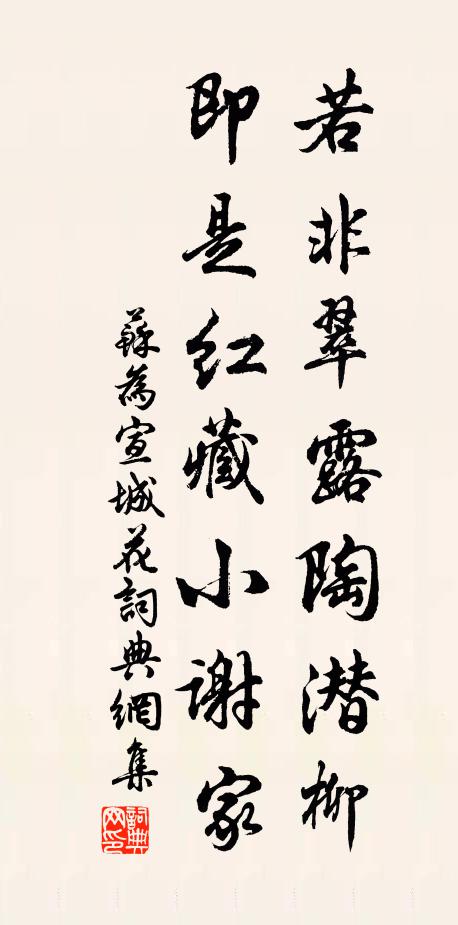 若非翠露陶潜柳
即是红藏小谢家
蘇為宣城花詞典網集
詞典網印